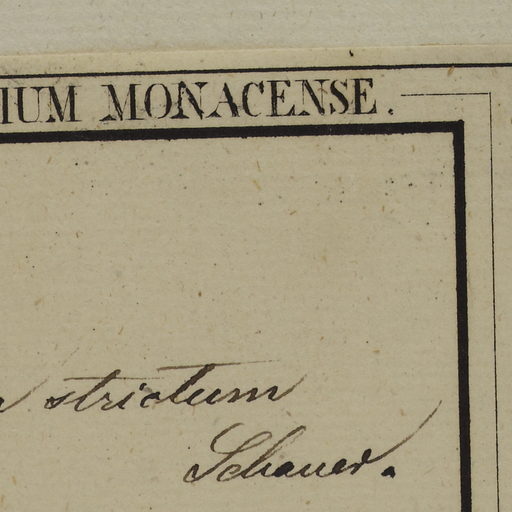 IUM MONACENSE.
strictum
Schauer.